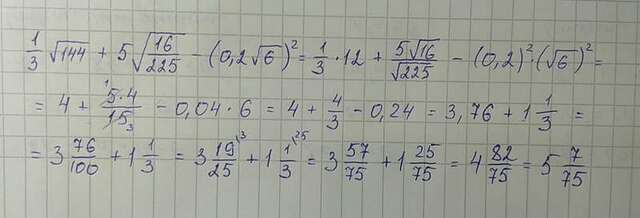 1/3 √144 + 5√(16/225) − (0,2√6)² = 1/3 · 12 + 5√16/√225 − (0,2)² · (√6)² =
= 4 + 5·4/15 1 3 − 0,04 · 6 = 4 + 4/3 − 0,24 = 3,76 + 1 1/3 =
= 3 76/100 + 1 1/3 = 3 19/25 \3 + 1 1/3 \25 = 3 57/75 + 1 25/75 = 4 82/75 = 5 7/75